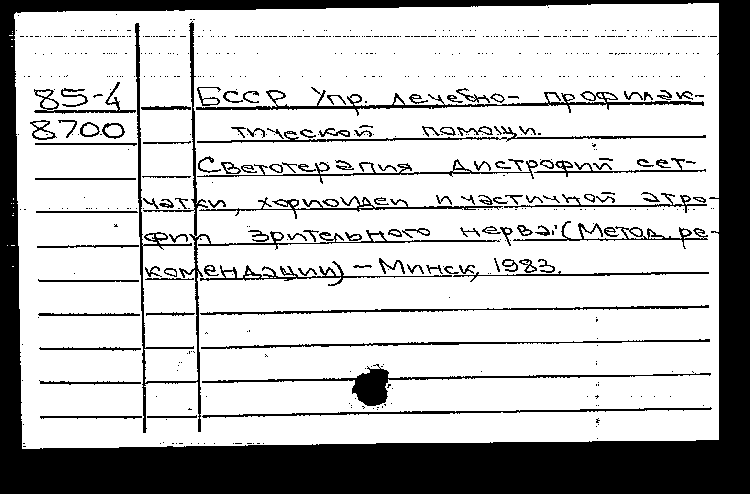 85-4 БССР Упр. лечебно- профилак-
8700 тической помощи.
Светотерапия дистрофий сет-
чатки, хориоидеи и частичной атро-
фии зрительного нерва: (Метод. ре-
комендации) – Минск, 1983.